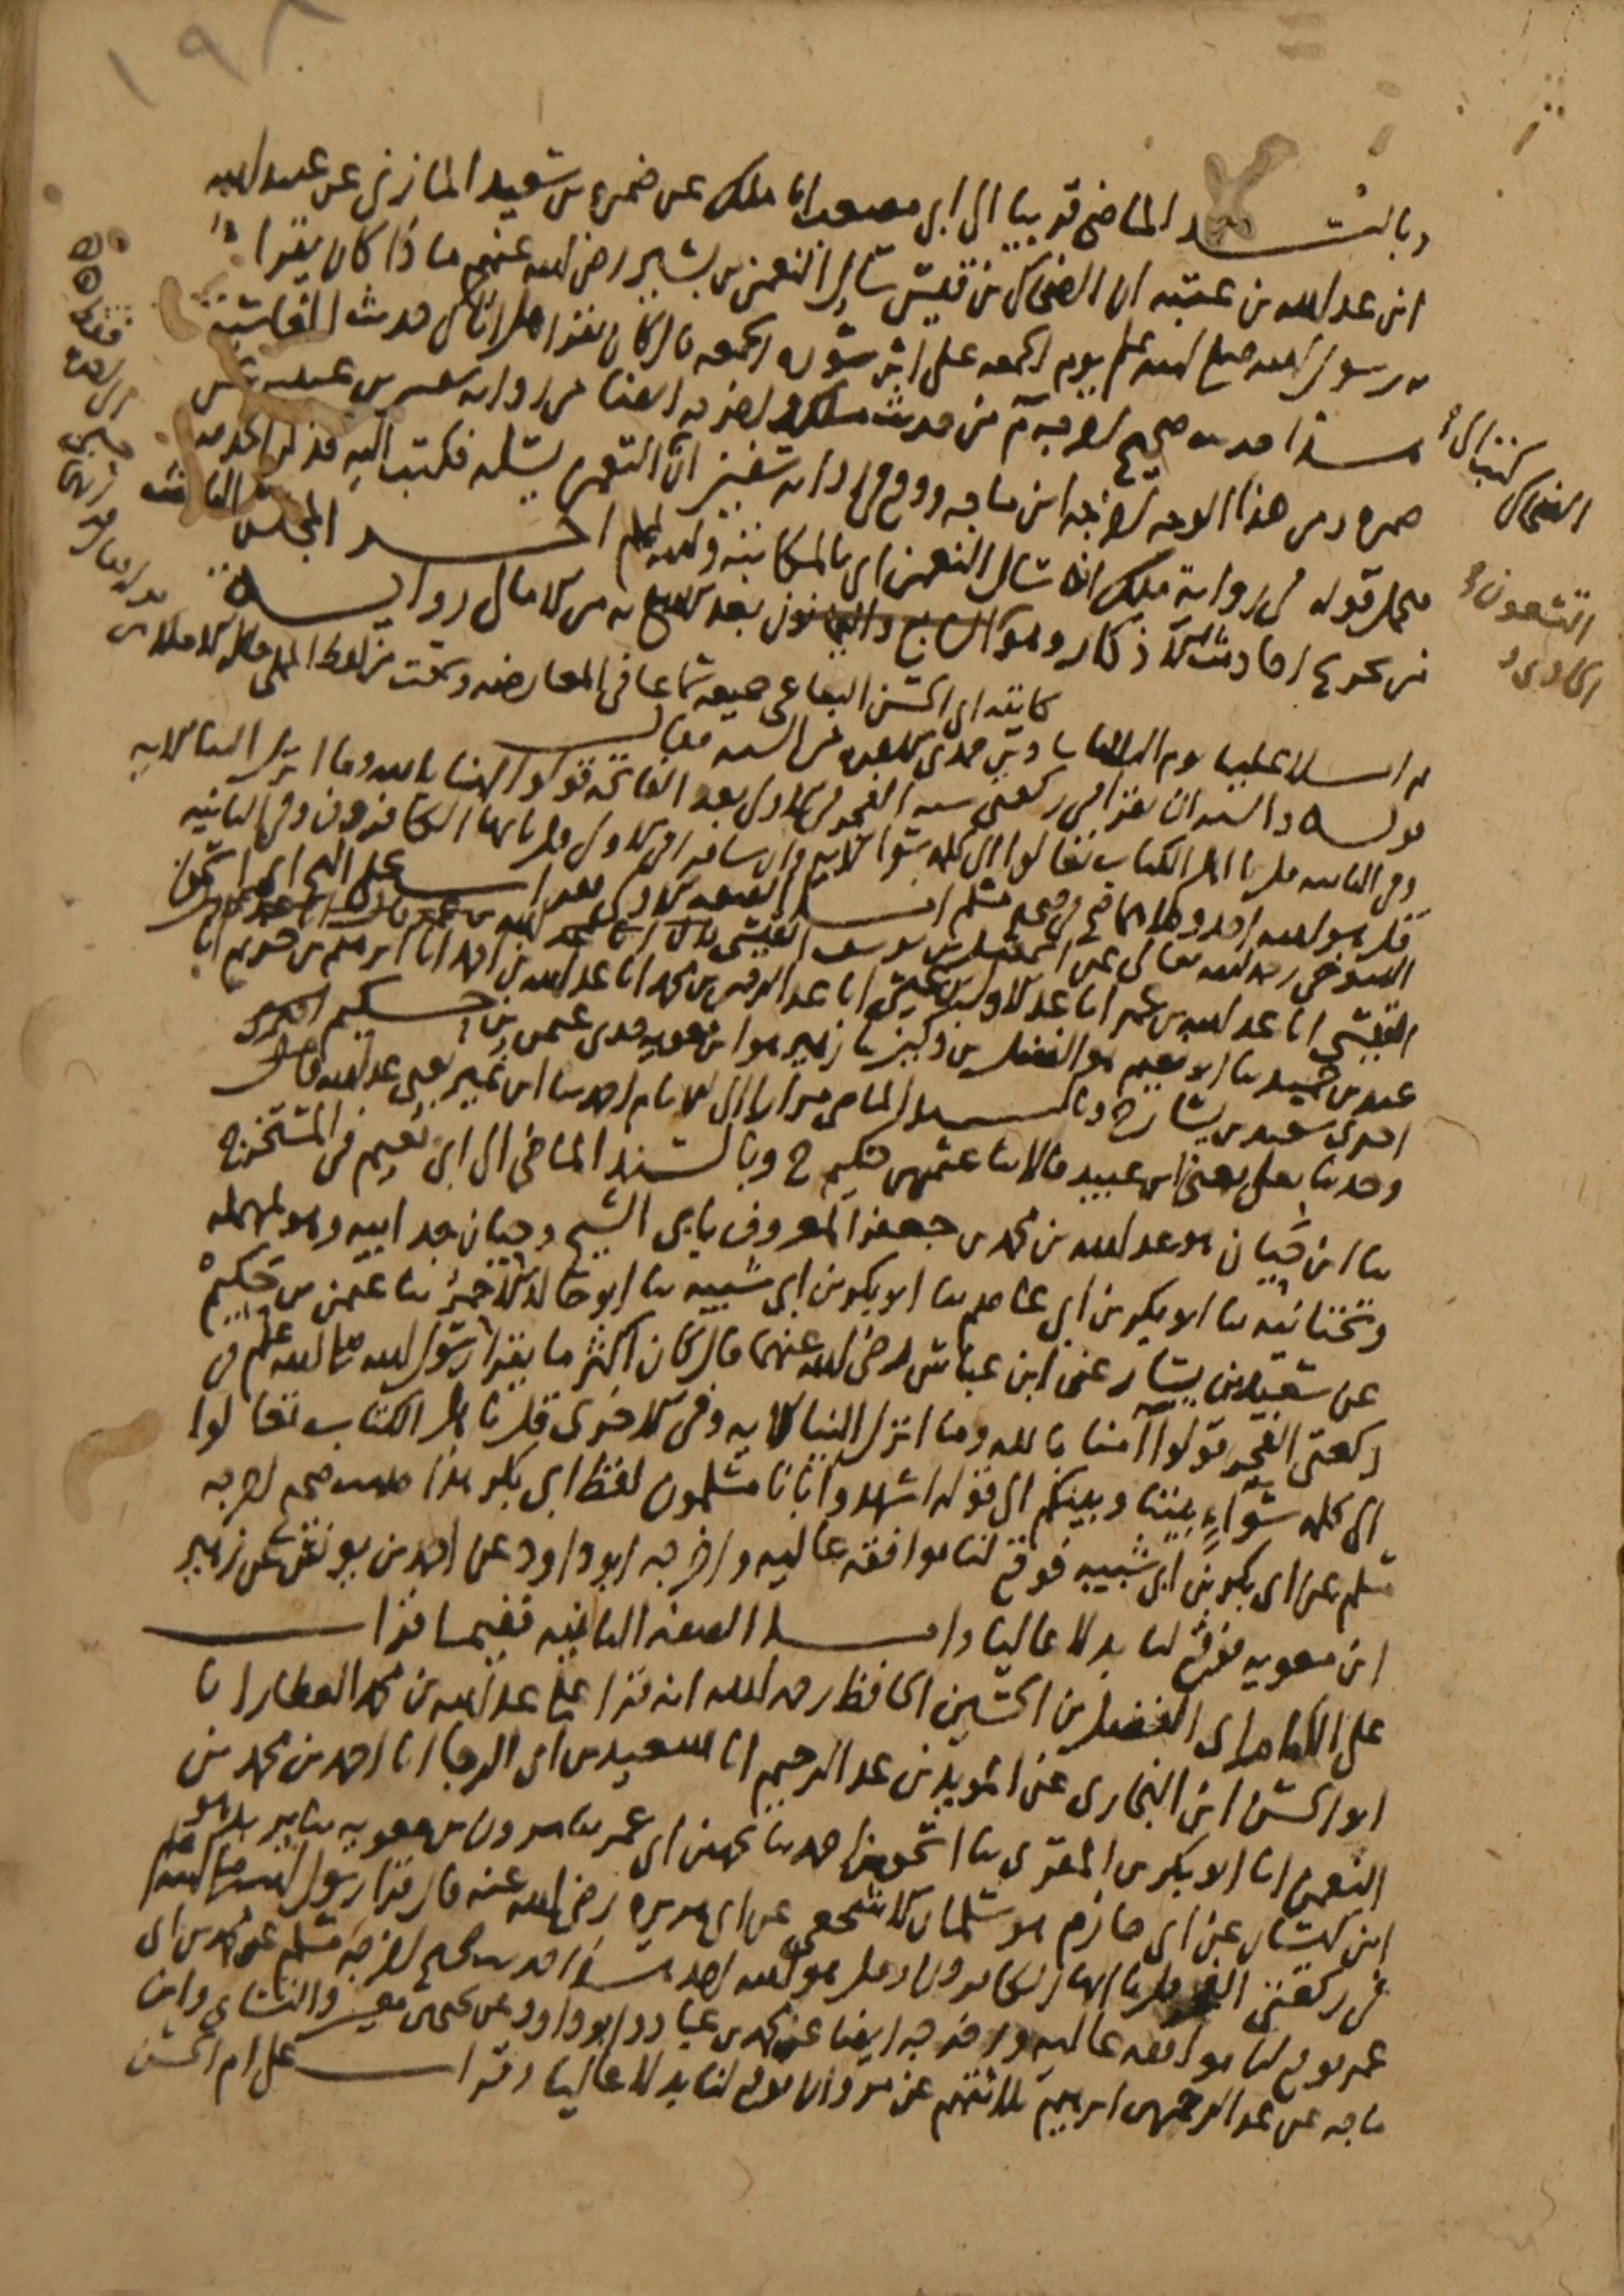 ١٩٨
وبالسند الماضي قريبا الى ابي مصعب انا ملك عن ضمرة بن سعيد المازني عن عبيد الله
ابن عبد الله بن عتبة ان الضحاك بن قيس سال النعمن بن بشير رضي الله عنهم ماذا كان يقرا
به رسول الله صلى الله عليه وسلم يوم الجمعة على اثر سورة الجمعة قال كان يقرا هل اتاك حديث الغاشية
هذا حديث صحيح اخرجه م من حديث ملك واخرجه ايضا من رواية سفين بن عيينة عن
ضمرة ومن هذا الوجه اخرجه ابن ماجه ووقع في رواية سفين ان النعمن يسله فكتب اليه فذكر الحديث
فيحمل قوله في رواية ملك انه سال النعمن اي بالمكاتبة والله اعلم اخر المجلس الثالث
من تخريج احاديث الاذكار وهو السابع والثمانون بعد الاربع من الامالي رواية
كاتبه ابي الحسن البقاعي جميعه سماعا في المعارضه وسمعت من لفظ المملي
الضحاك كتب الى
التسعون
الحادي
ثم املا علينا يوم الثلاثا
قوله والسنة ان يقرا في ركعتي سنة الفجر في الاولى بعد الفاتحة قولوا امنا بالله وما انزل الينا الاية
وفي الثانية قل يا اهل الكتاب تعالوا الى كلمة سواء الاية وان شا قرا في الاولى قل يا ايها الكافرون وفي الثانية
قل هو الله احد وكلاهما صح في صحيح مسلم اما الصفة الاولى فقرات على الشيخ ابي اسحق
التنوخي رحمه الله تعالى عن اسمعيل بن يوسف القيسي
القيسي انا عبد الله بن عمر انا عبد الاول بن عيسى انا عبد الرحمن بن محمد انا عبد الله بن احمد انا ابرهيم بن خزيم انا
عبد بن حميد ثنا ابو نعيم هو الفضل بن دكين ثنا زهير هو ابن معوية حدثني عثمن بن حكيم
اخبرني سعيد بن يسار ح وبالسند الماضي مرارا الى الامام احمد ثنا ابن نمير يعني عبد الله قال
وحدثنا يعلى يعني ابن عبيد قالا ثنا عثمن بن حكيم ح وبالسند الماضي الى ابي نعيم في المستخرج
ثنا ابن حيان هو عبد الله بن محمد بن جعفر المعروف بابي الشيخ وحيان جد ابيه وهو بمهملة
وتحتانية ثنا ابو بكر بن ابي عاصم ثنا ابو بكر بن ابي شيبة ثنا ابو خالد الاحمر ثنا عثمن بن حكيم
عن سعيد بن يسار عن ابن عباس رضي الله عنهما قال كان اكثر ما يقرا رسول الله صلى الله عليه وسلم في
ركعتي الفجر قولوا امنا بالله وما انزل الينا الاية وفي الاخرى قل يا اهل الكتاب تعالوا
الى كلمة سواء بيننا وبينكم الى قوله اشهدوا بانا مسلمون لفظ ابي بكر هذا حديث صحيح اخرجه
مسلم عن ابي بكر بن ابي شيبة فوقع لنا موافقة عالية واخرجه ابو داود عن احمد بن يونس عن زهير
ابن معوية فوقع لنا بدلا عاليا واما الصفة الثانية ففيما قرات
على الامام ابي الفضل بن الحسين الحافظ رحمه الله انه قرا على عبد الله بن محمد العطار انا
ابو الحسن ابن البخاري عن المويد بن عبد الرحيم انا سعيد بن ابي الرجا انا احمد بن محمد بن
النعمن انا ابو بكر بن المقري ثنا اسحق بن احمد ثنا محمد بن ابي عمر ثنا مروان بن معوية ثنا يزيد هو
ابن كيسان عن ابي حازم هو سلمان الاشجعي عن ابي هريرة رضي الله عنه قال قرا رسول الله صلى الله عليه وسلم
في ركعتي الفجر قل يا ايها الكافرون وقل هو الله احد هذا حديث صحيح اخرجه مسلم عن محمد بن ابي
عمر فوقع لنا موافقة عالية واخرجه ايضا عن محمد بن عباد وابو داود عن يحيى بن معين والنساي وابن
ماجه عن عبد الرحمن بن ابرهيم ثلاثتهم عن مروان فوقع لنا بدلا عاليا وقرات على ام الحسن